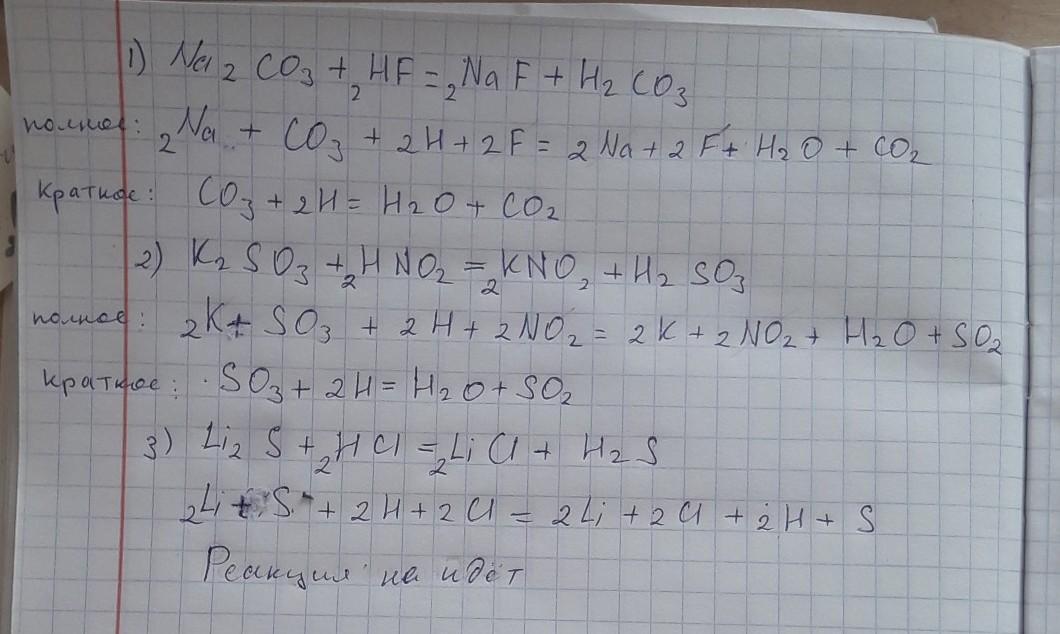 1) Na2CO3 + 2HF = 2NaF + H2CO3
полное: 2Na + CO3 + 2H + 2F = 2Na + 2F + H2O + CO2
краткое: CO3 + 2H = H2O + CO2
2) K2SO3 + 2HNO2 = 2KNO2 + H2SO3
полное: 2K + SO3 + 2H + 2NO2 = 2K + 2NO2 + H2O + SO2
краткое: SO3 + 2H = H2O + SO2
3) Li2S + 2HCl = 2LiCl + H2S
2Li + S + 2H + 2Cl = 2Li + 2Cl + 2H + S
Реакция не идёт